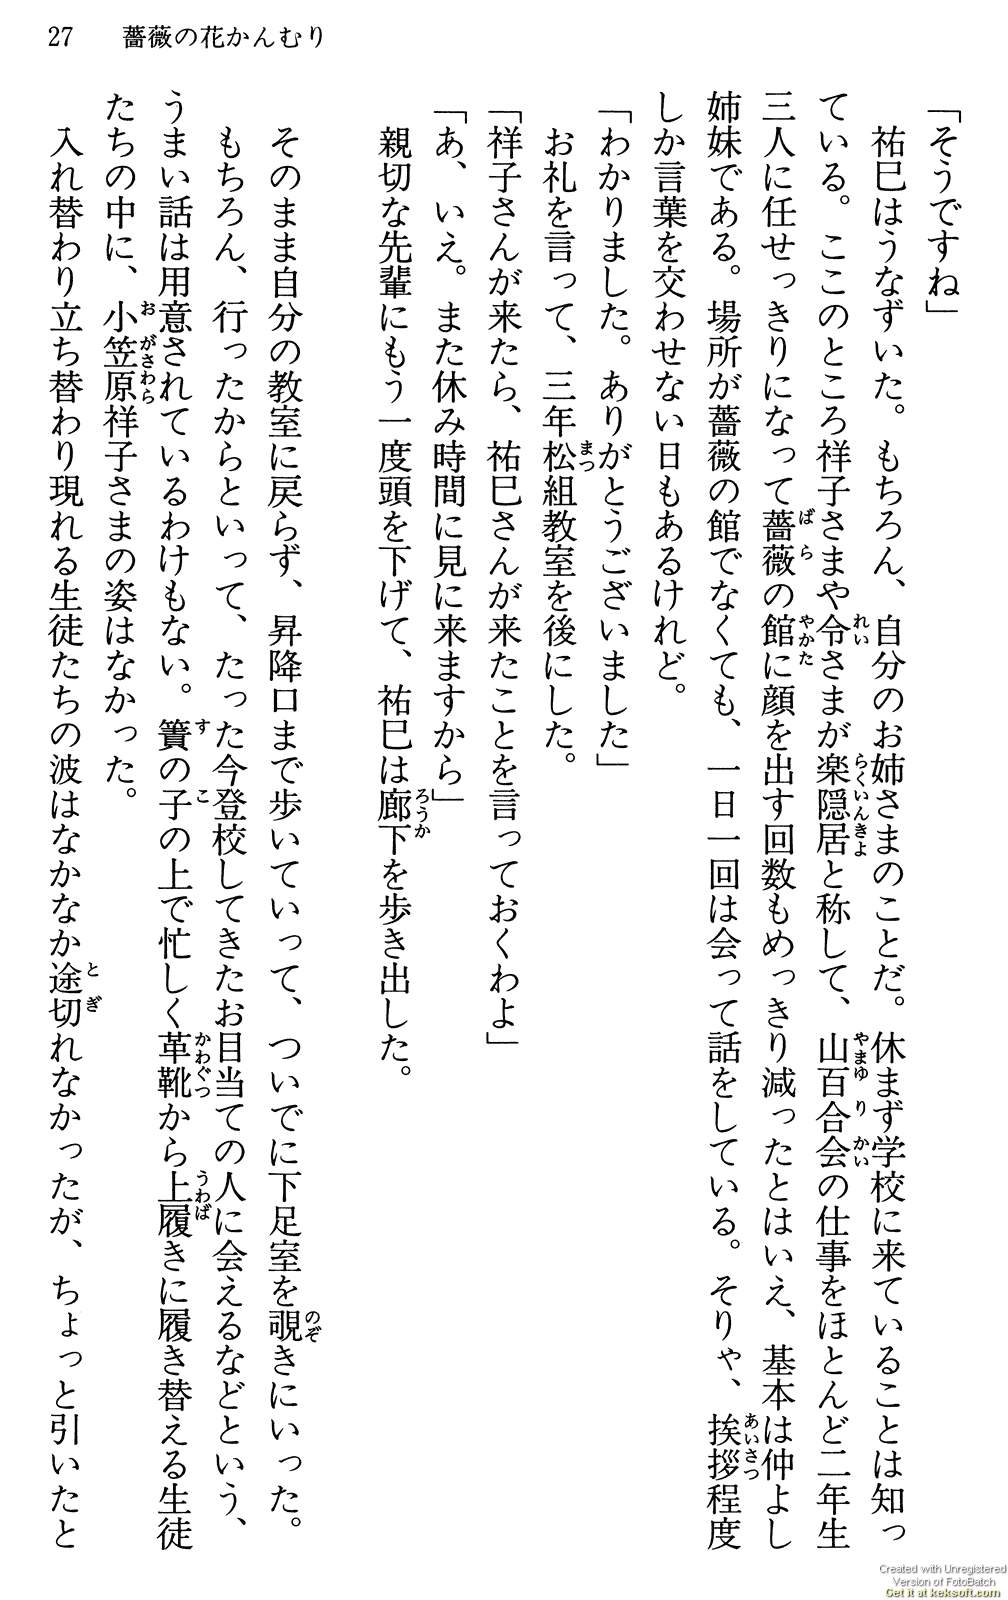 27　薔薇の花かんむり
「そうですね」
　祐巳はうなずいた。もちろん、自分のお姉さまのことだ。休まず学校に来ていることは知っ
ている。ここのところ祥子さまや令さまが楽隠居と称して、山百合会の仕事をほとんど二年生
三人に任せっきりになって薔薇の館に顔を出す回数もめっきり減ったとはいえ、基本は仲よし
姉妹である。場所が薔薇の館でなくても、一日一回は会って話をしている。そりゃ、挨拶程度
しか言葉を交わせない日もあるけれど。
「わかりました。ありがとうございました」
　お礼を言って、三年松組教室を後にした。
「祥子さんが来たら、祐巳さんが来たことを言っておくわよ」
「あ、いえ。また休み時間に見に来ますから」
　親切な先輩にもう一度頭を下げて、祐巳は廊下を歩き出した。
　そのまま自分の教室に戻らず、昇降口まで歩いていって、ついでに下足室を覗きにいった。
　もちろん、行ったからといって、たった今登校してきたお目当ての人に会えるなどという、
うまい話は用意されているわけもない。簀の子の上で忙しく革靴から上履きに履き替える生徒
たちの中に、小笠原祥子さまの姿はなかった。
　入れ替わり立ち替わり現れる生徒たちの波はなかなか途切れなかったが、ちょっと引いたと
Created with Unregistered
Version of FotoBatch
Get it at keksoft.com